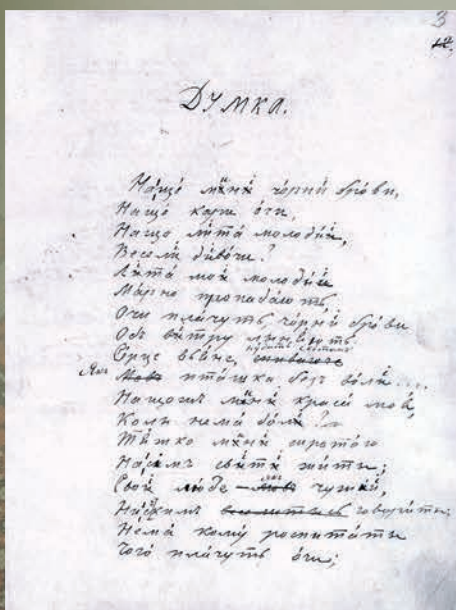 3
12.
Думка.
На́що мѝни́ чо́рний бро́ви,
На́що ка́ри о́чи,
На́що ли́та молоди́и,
Весе́ли диво́чи?
Ли́та мои́ молоди́и
Ма́рно пропада́ють,
О́чи пла́чуть, чо́рни бро́ви
Одъ ви́тру линя́ють.
Се́рце вья́не, нудить свитомъ
Якъ
Мовъ пта́шка безъ во́ли
На́щожъ мини́ краса́ моя́,
Коли́ нема́ до́ли?
Тя́жко мини́ сирото́ю
На симъ свити́ жи́ти;
Свои́ лю́де якъ мовъ чужи́и,
Ни съ кимъ говори́ти;
Нема́ кому́ розпита́ти
Чого́ пла́чуть о́чи;